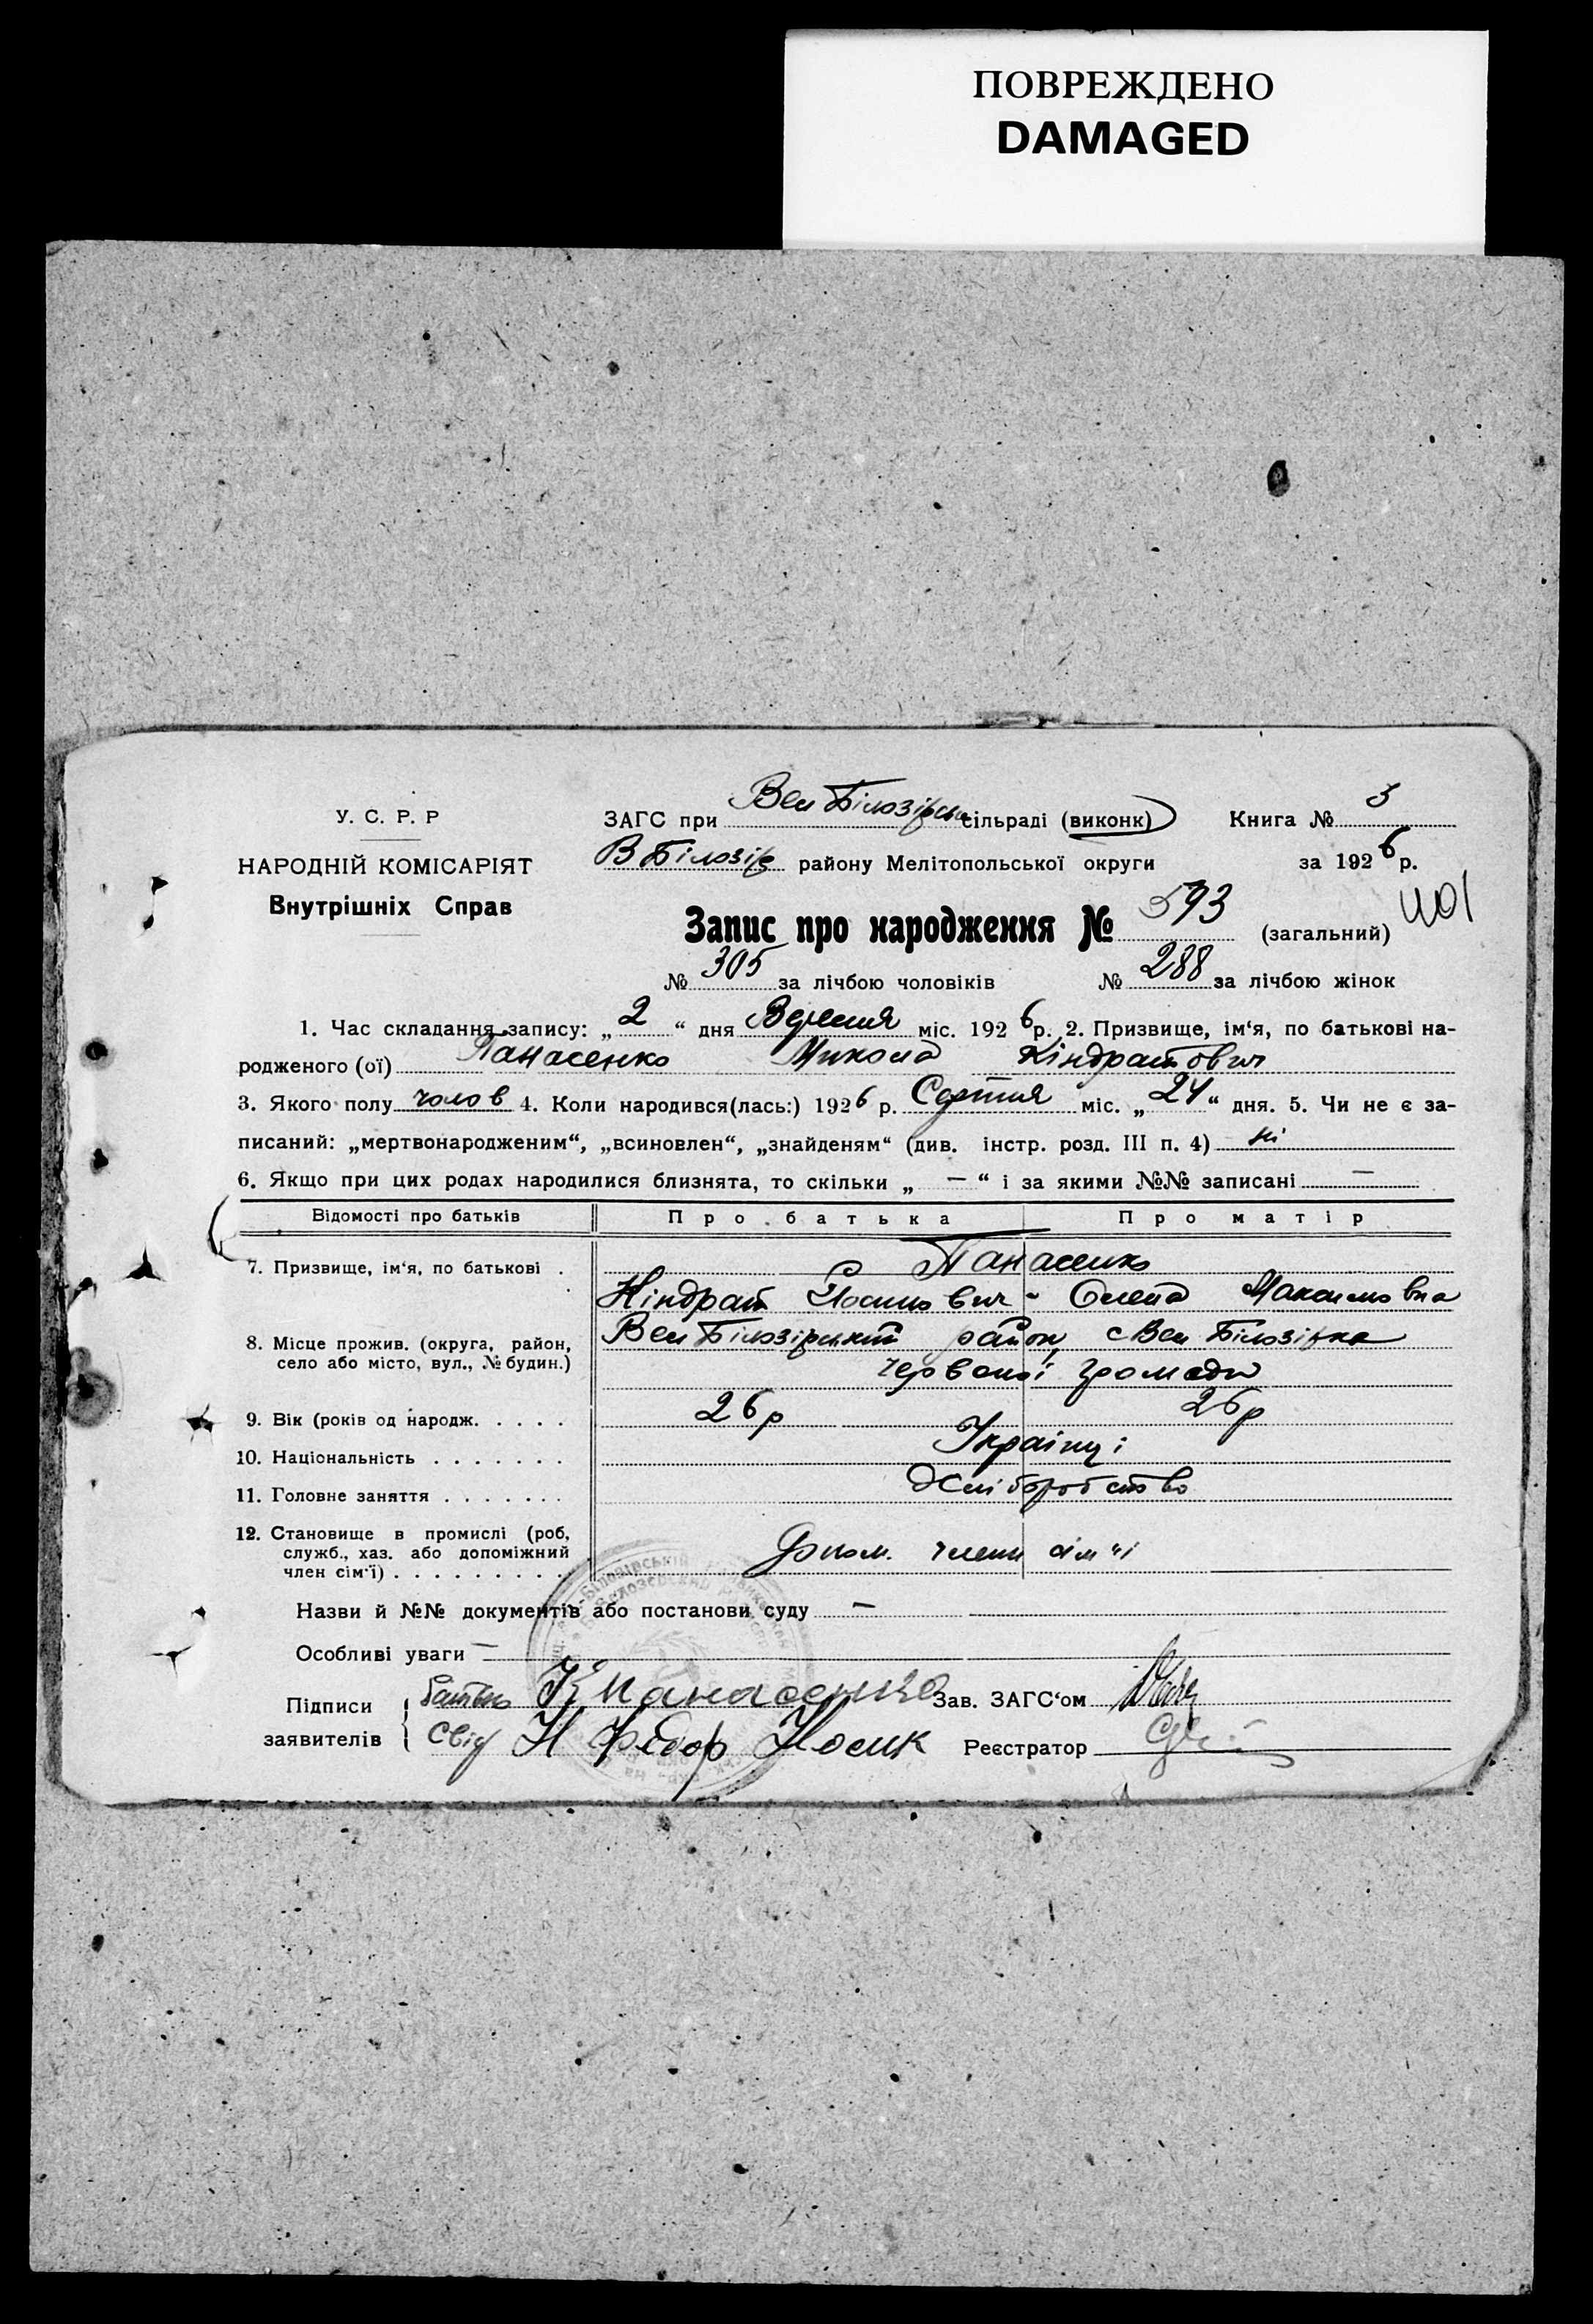 ПОВРЕЖДЕНО
DAMAGED
У. С. Р. Р
НАРОДНІЙ КОМІСАРІЯТ
Внутрішніх Справ
ЗАГС при Вел Білозірськ сільраді (виконк) Книга № 3
В Білозір району Мелітопольської округи за 1926 р.
Запис про народження № 593 (загальний) 401
№ 305 за лічбою чоловіків № 288 за лічбою жінок
1. Час складання запису: „ 2 “ дня Вересня міс. 1926 р. 2. Призвище, ім‘я, по батькові на-
родженого (ої) Панасенко Микола Кіндратович
3. Якого полу чолов 4. Коли народився(лась:) 1926 р. Серпня міс. „ 24 “ дня. 5. Чи не є за-
писаний: „мертвонародженим“, „всиновлен“, „знайденям“ (див. інстр. розд. III п. 4) ні
6. Якщо при цих родах народилися близнята, то скільки „ — “ і за якими №№ записані —
Відомості про батьків Про батька Про матір
7. Призвище, ім‘я, по батькові . Панасенко
Кіндрат Йосипович - Олена Максимовна
8. Місце прожив. (округа, район, село або місто, вул., № будин.) Вел Білозірський район, с Вел Білозірка
Червоної громади
9. Вік (років од народж. . . . . 26 р 26 р
10. Національність . . . . . . . Українці
11. Головне заняття . . . . . . . Хліборобство
12. Становище в промислі (роб, служб., хаз. або допоміжний член сім‘ї) . . . . . . . . . Допом. члени сім'ї
Назви й №№ документів або постанови суду —
Особливі уваги —
Підписи заявителів { батько К Панасенко Зав. ЗАГС‘ом
Свід Н Федор Носик Реєстратор